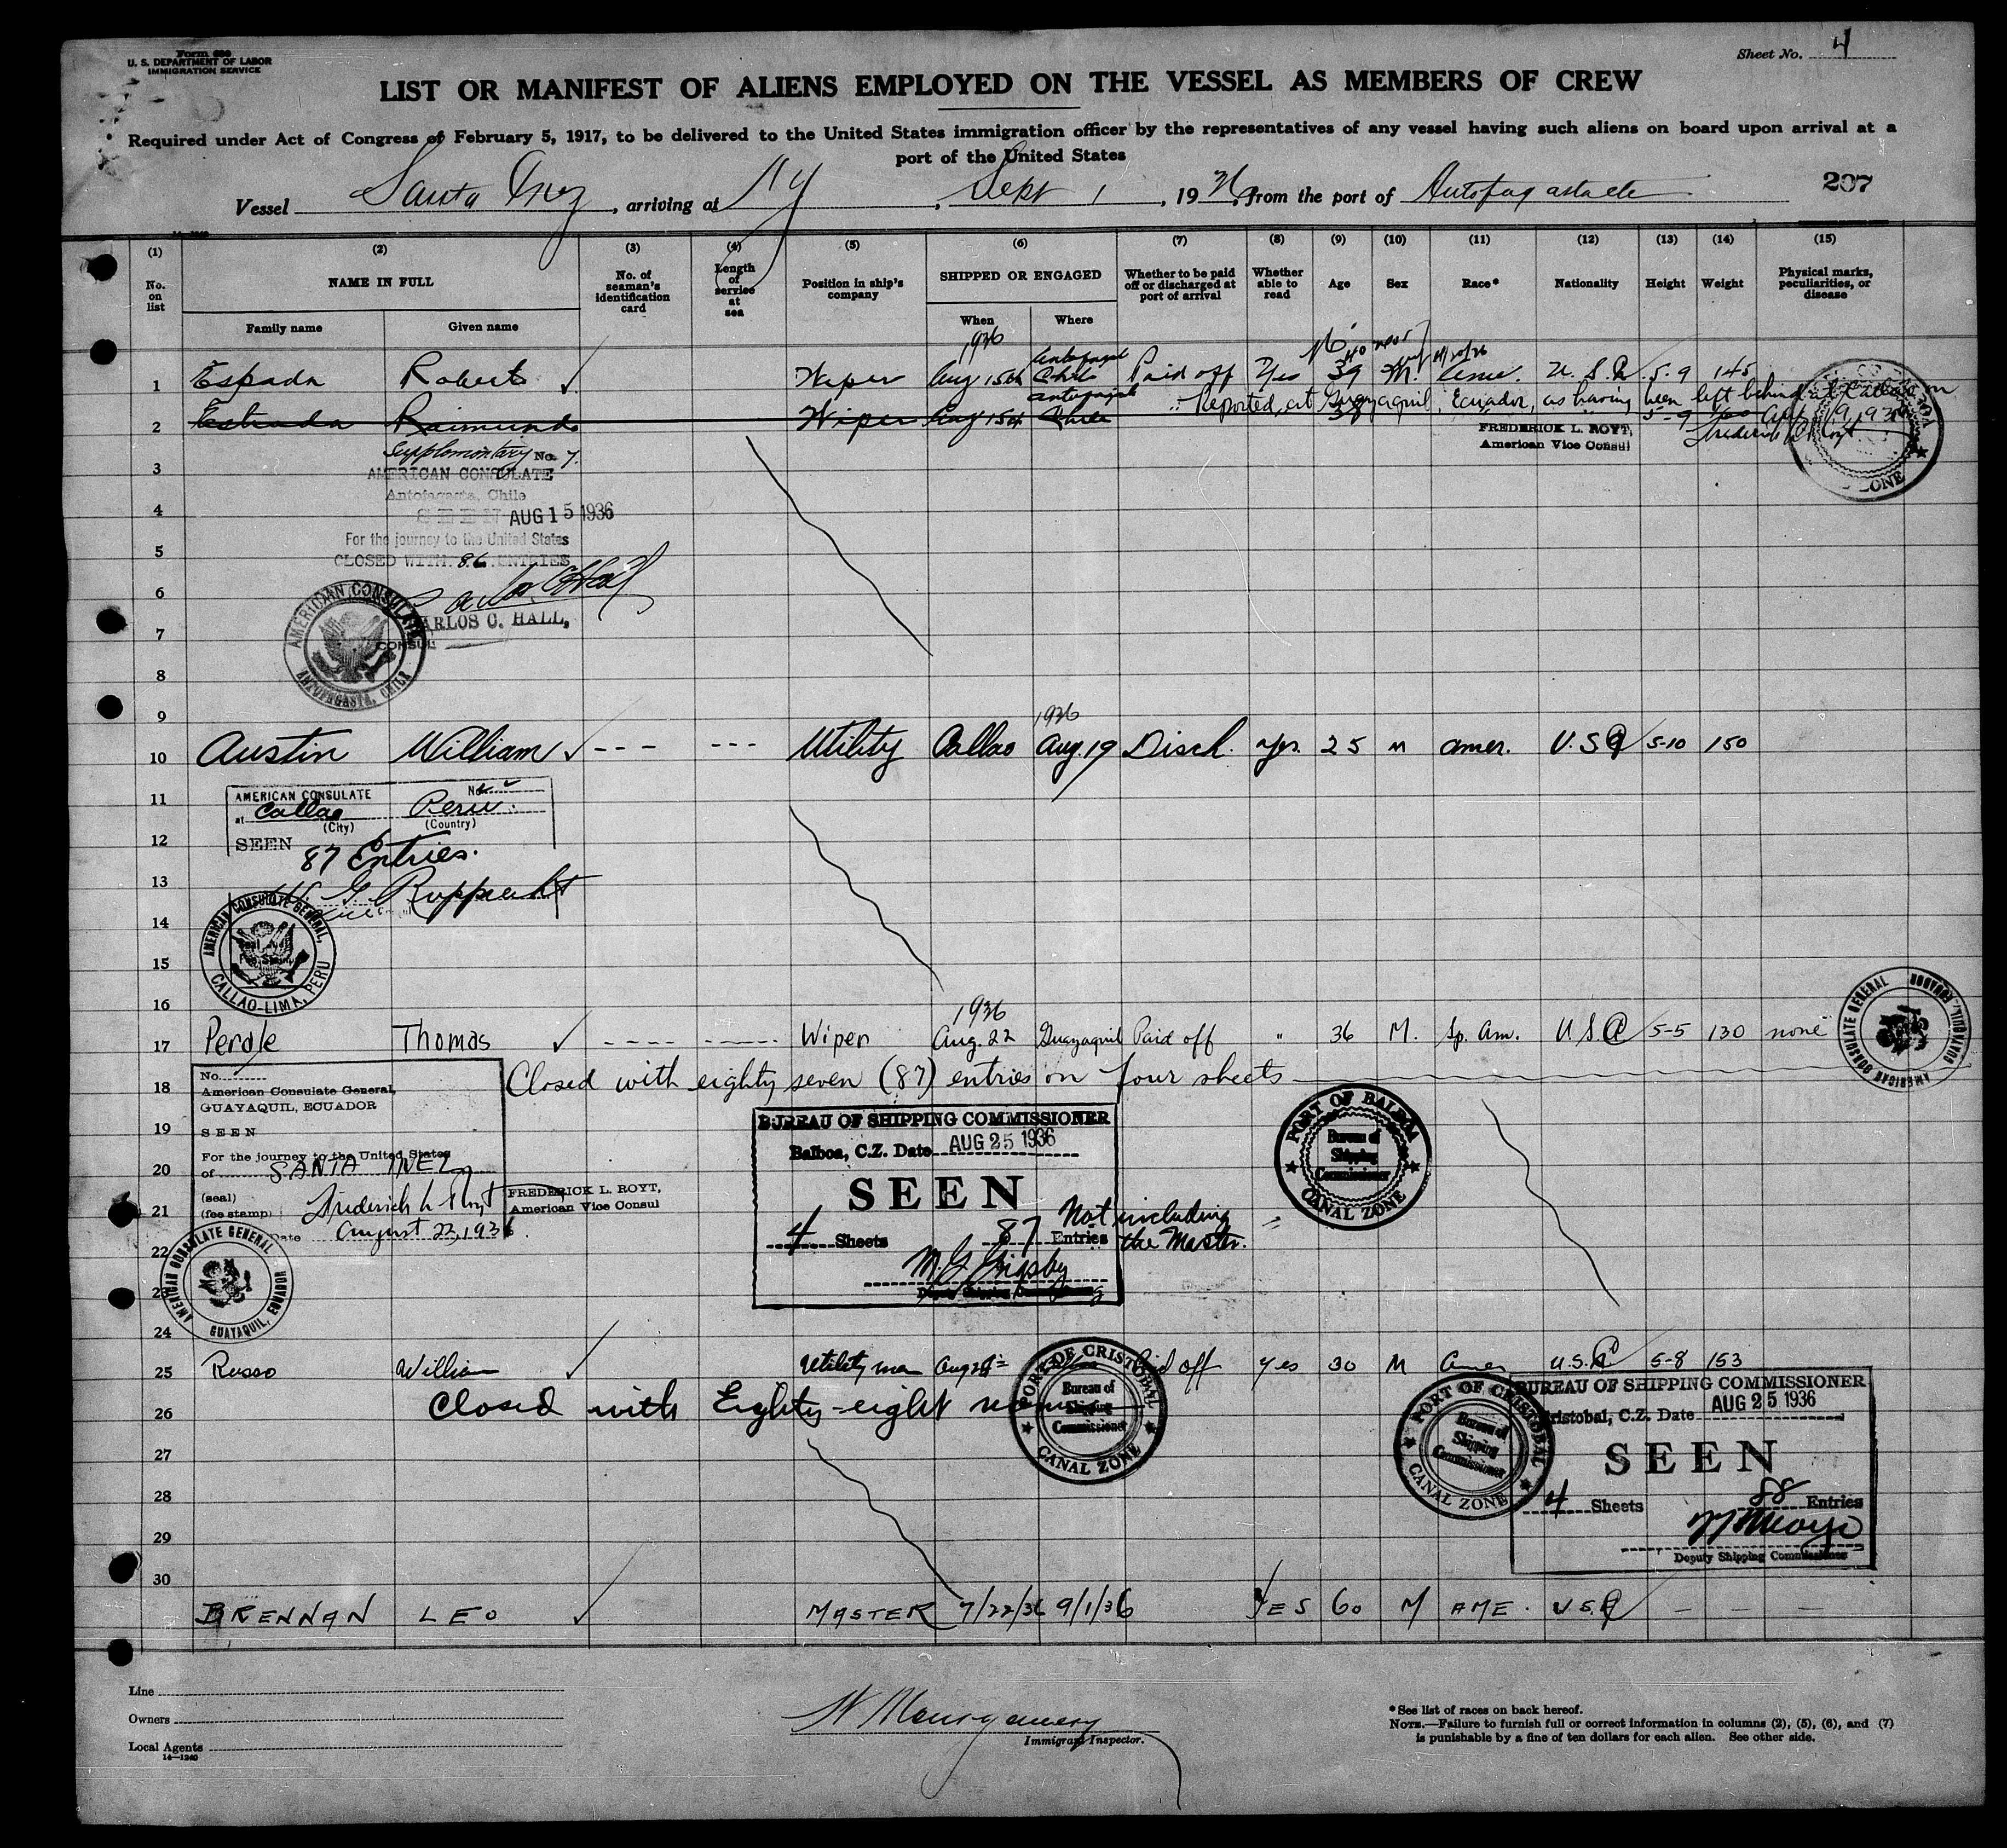 Form 680
U. S. DEPARTMENT OF LABOR
IMMIGRATION SERVICE
Sheet No. 4
LIST OR MANIFEST OF ALIENS EMPLOYED ON THE VESSEL AS MEMBERS OF CREW
Required under Act of Congress of February 5, 1917, to be delivered to the United States immigration officer by the representatives of any vessel having such aliens on board upon arrival at a
port of the United States
Vessel Santa Inez, arriving at NY, Sept 1, 1936, from the port of Antofagasta
207
(1) (2) (3) (4) (5) (6) (7) (8) (9) (10) (11) (12) (13) (14) (15)
No. on list NAME IN FULL No. of seaman's identification card Length of service at sea Position in ship's company SHIPPED OR ENGAGED Whether to be paid off or discharged at port of arrival Whether able to read Age Sex Race* Nationality Height Weight Physical marks, peculiarities, or disease
Family name Given name When Where
1936
1 Espada Roberto ✓ Wiper Aug 15th Antofagasta Chile Paid off Yes 39 M. Ame. U.S.A 5-9 145
Reported at Guayaquil, Ecuador, as having been left behind at Callao on
2 Estrada Raimundo Wiper Aug 15th Antofagasta Chile 38 5-9 Aug 19, 1936
FREDERICK L. ROYT,
American Vice Consul
Supplementary No. 7.
3 AMERICAN CONSULATE
Antofagasta, Chile
4 SEEN AUG 15 1936
For the journey to the United States
5 CLOSED WITH 86 ENTRIES
6
CARLOS C. HALL,
7 CONSUL
AMERICAN CONSULATE ANTOFAGASTA, CHILE
8
9
1936
10 Austin William ✓ --- --- Utility Callao Aug. 19 Disch. yes. 25 M Amer. U.S.A 5-10 150
11 AMERICAN CONSULATE No.
at Callao Peru.
(City) (Country)
12 SEEN
87 Entries.
13 G Rupprecht
14 AMERICAN CONSULATE GENERAL, CALLAO-LIMA, PERU
15
16
1936
17 Perdle Thomas ✓ ---- ----- Wiper Aug. 22 Guayaquil Paid off " 36 M. Sp. Am. U.S.A 5-5 130 none
AMERICAN CONSULATE GENERAL GUAYAQUIL, ECUADOR
No.
18 Closed with eighty seven (87) entries on four sheets
American Consulate General,
GUAYAQUIL, ECUADOR
19 SEEN
For the journey to the United States
20 of SANTA INEZ
(seal)
21 (fee stamp) Frederick L Royt
FREDERICK L. ROYT,
American Vice Consul
22 Date August 23, 1936
AMERICAN CONSULATE GENERAL GUAYAQUIL, ECUADOR
BUREAU OF SHIPPING COMMISSIONER
Balboa, C.Z. Date AUG 25 1936
SEEN
4 Sheets 87 Entries Not including the Master.
M. G. Grigsby
Deputy Shipping Commissioner
PORT OF BALBOA Bureau of Shipping Commissioner CANAL ZONE
23
24
25 Russo William ✓ Utility man Aug Paid off yes 30 M Amer U.S.A 5-8 153
26 Closed with Eighty-eight
PORT OF CRISTOBAL Bureau of Shipping Commissioner CANAL ZONE
PORT OF CRISTOBAL Bureau of Shipping Commissioner CANAL ZONE
BUREAU OF SHIPPING COMMISSIONER
Cristobal, C.Z. Date AUG 25 1936
SEEN
4 Sheets 88 Entries
Deputy Shipping Commissioner
27
28
29
30
BRENNAN LEO ✓ MASTER 7/22/36 9/1/36 YES 60 M AME. U.S.A — —
Line
Owners
Local Agents
14—1240
W Montgomery
Immigrant Inspector.
*See list of races on back hereof.
NOTE.—Failure to furnish full or correct information in columns (2), (5), (6), and (7)
is punishable by a fine of ten dollars for each alien. See other side.